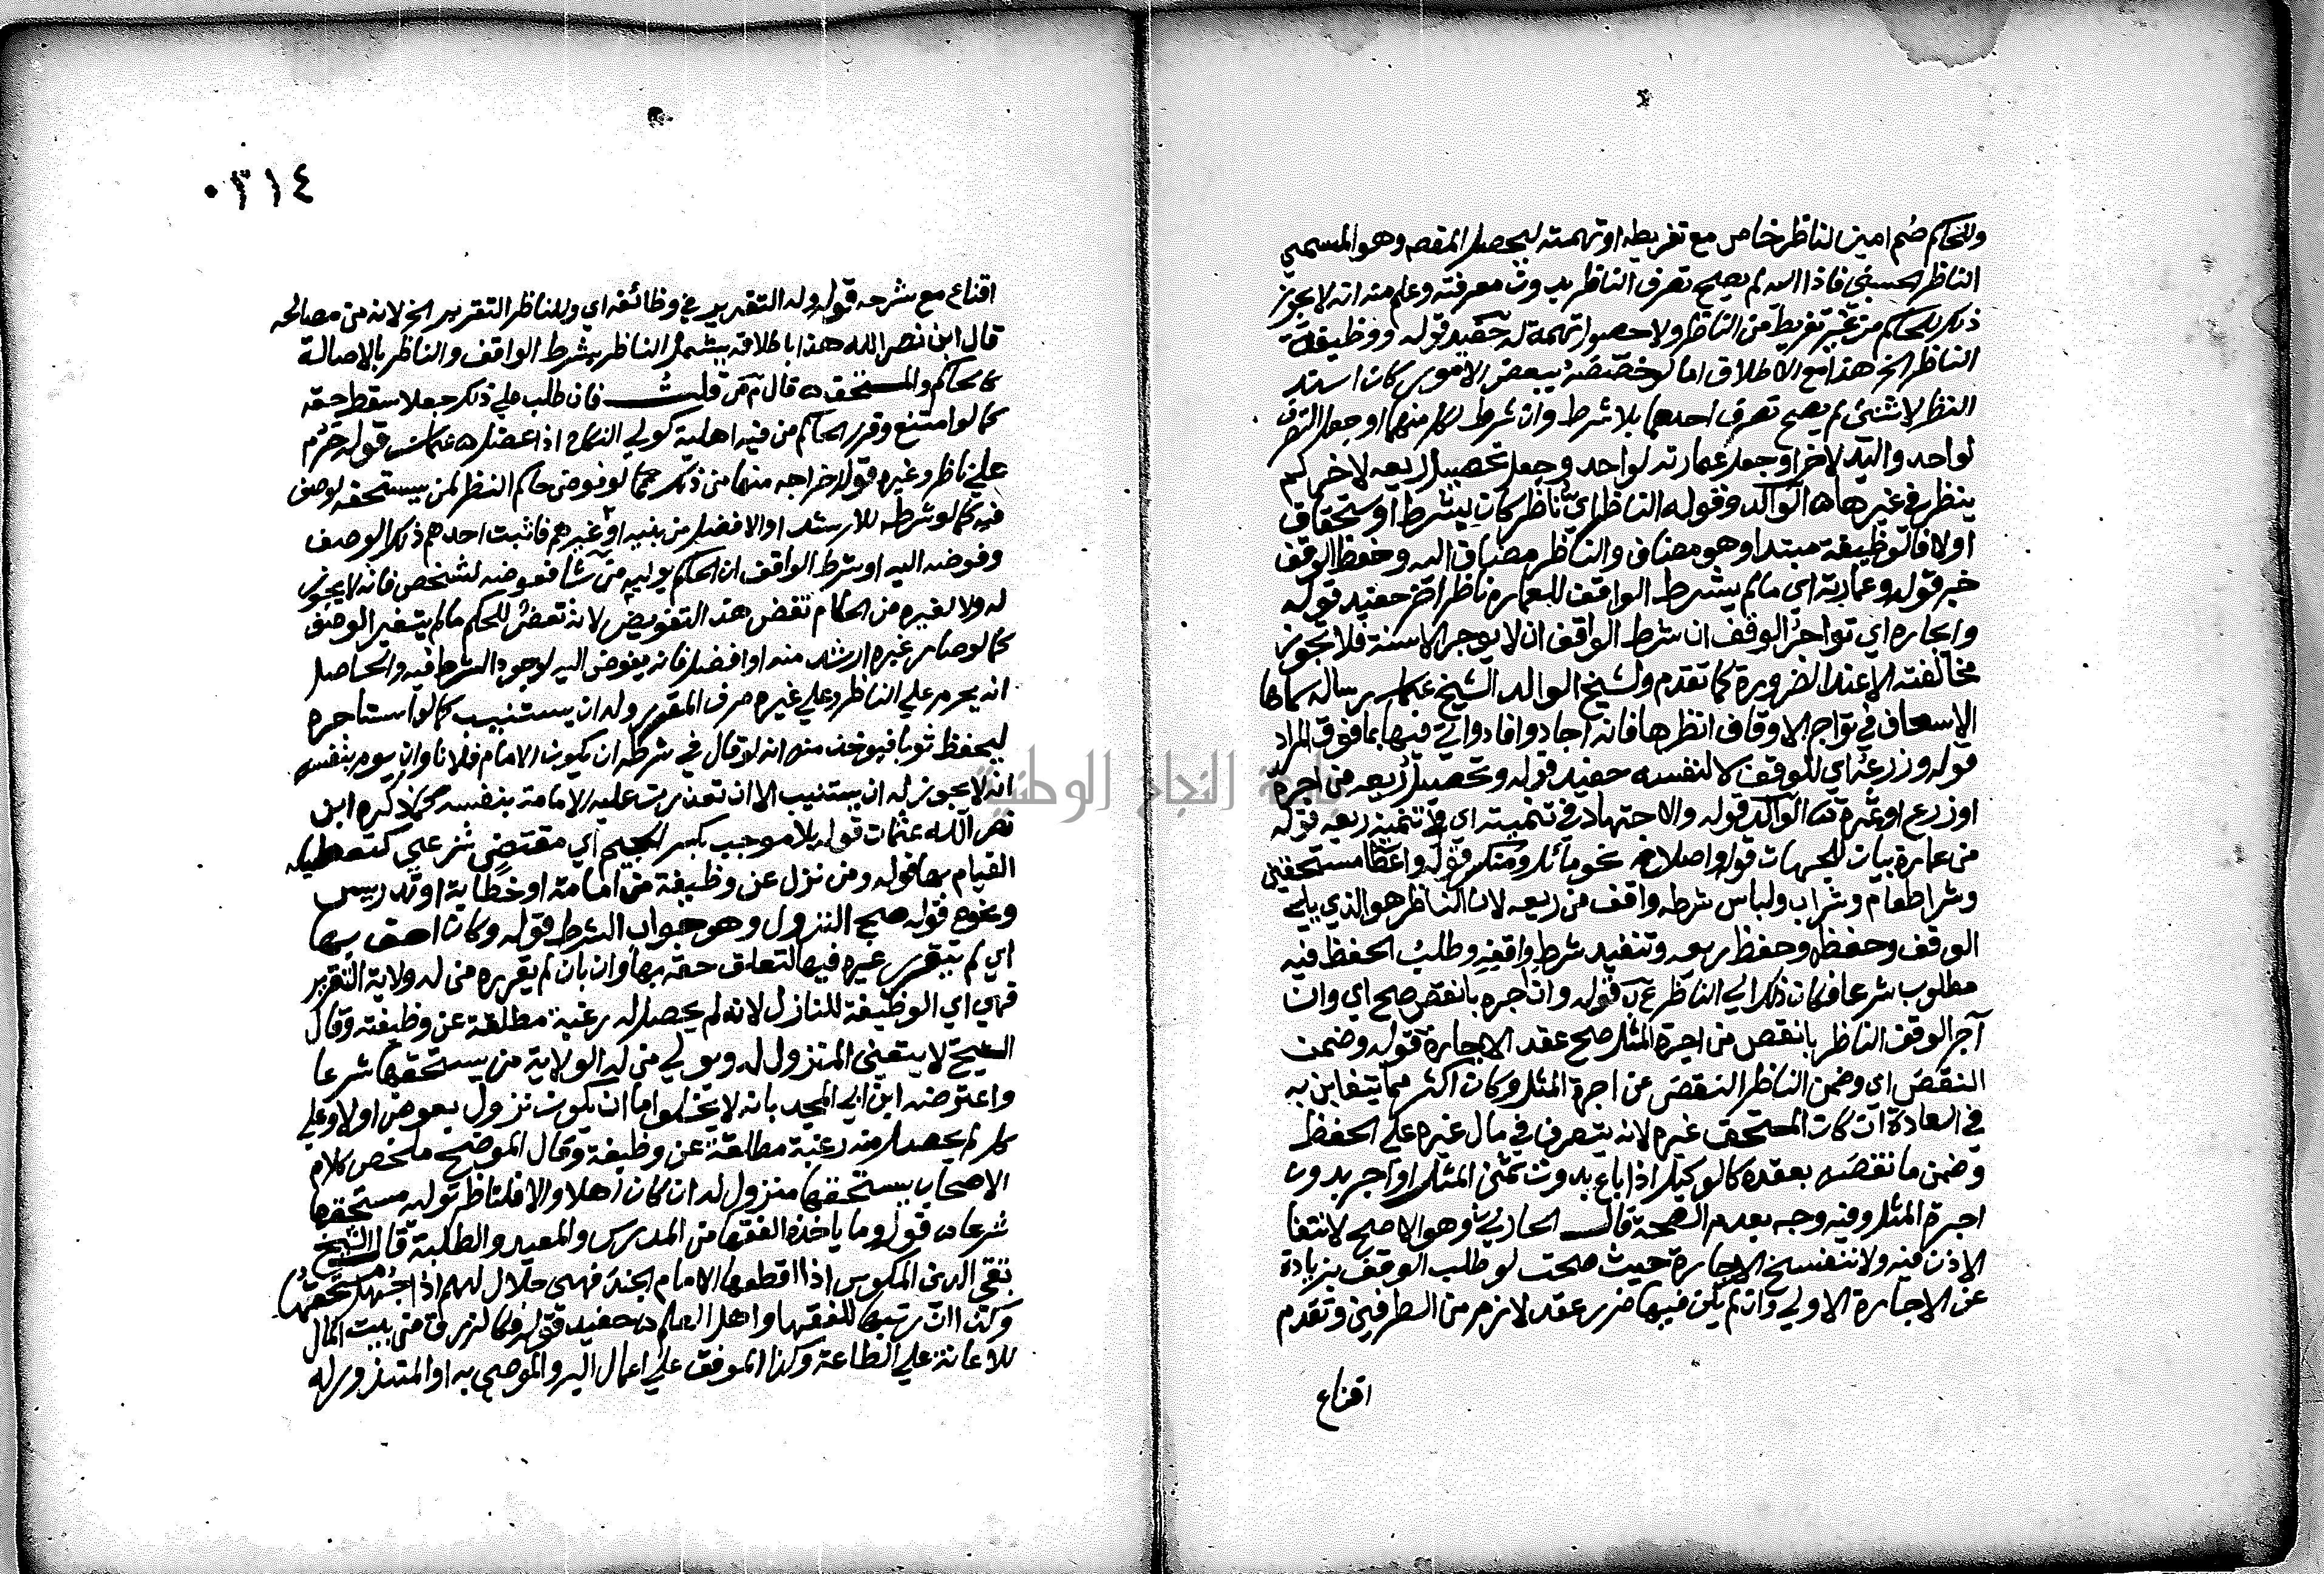 وللحاكم ضم امين لناظر خاص مع تفريطه او تهمته ليحصل المقصود وهو المسمى
الناظر الحسبي فاذا لم يصح تصرف الناظر بدون معرفته وعلم منه انه لا يجوز
ذلك للحاكم من غير تفريط من الناظر ولا حصول تهمة له حفيد قوله ووظيفة
الناظر الخ هذا مع الاطلاق اما لو خصصه ببعض الامور كان اسند
النظر لاثنين لم يصح تصرف احدهما بلا شرط وان شرط لكل منهما او جعل التصرف
لواحد واليد لاخر او جعل عمارته لواحد وجعل تحصيل ريعه لاخر لم
ينظر في غيرها ه الوالد وقوله الناظر اي ناظر كان بشرط او ستحقاق
اولا فالوظيفة مبتدا وهو مضاف والناظر مضاف اليه وحفظ الوقف
خبر قوله وعمارته اي ما لم يشترط الواقف للعمارة ناظرا اخر حفيد قوله
وايجاره اي تواجر الوقف ان شرط الواقف ان لا يوجر الا سنة فلا يجوز
مخالفته الا عند الضرورة كما تقدم ولشيخ الوالد الشيخ رسالة سماها
الاسعاف في تواجر الاوقاف انظرها فانه اجاد وافاد واتى فيها بما فوق المراد
قوله وزرعه اي للوقف لا لنفسه حفيد قوله وتحصيل ريعه من اجرة
او زرع او ثمرة الوالد قوله والاجتهاد في تنميته اي في تنمية ريعه قوله
من عمارة بيان للجهات قوله واصلاح نحو مائل ومنكسر قوله واعطا مستحقين
وشرا طعام وشراب ولباس شرطه واقف من ريعه لان الناظر هو الذي يلي
الوقف وحفظه وحفظ ريعه وتنفيذ شرط واقفه وطلب الحفظ فيه
مطلوب شرعا فكان ذلك الى الناظر قوله وان اجره بانقص صح اي وان
آجر الوقف الناظر بانقص من اجرة المثل صح عقد الاجارة قوله وضمن
النقص اي وضمن الناظر النقص عن اجرة المثل وكان اكثر مما يتغابن به
في العادة ان كان المستحق غيره لانه يتصرف في مال غيره على الحفظ
وضمن ما نقصه بعقده كالوكيل اذا باع بدون ثمن المثل او اجر بدون
اجرة المثل وفيه وجه بعدم الصحة قال الحارثي وهو الاصح لانتفا
الاذن فيه ولا تنفسخ الاجارة حيث صحت لو طلب الوقف بزيادة
عن الاجارة الاولى وان لم يكن فيها ضرر عقد لازم من الطرفين وتقدم
اقناع
٠٣١٤
اقناع مع شرحه قوله وله التقرير في وظائفه اي وللناظر التقرير الخ لانه من مصالحه
قال ابن نصر الله هذا باطلاقه يشمل الناظر بشرط الواقف والناظر بالاصالة
كالحاكم والمستحق ه قال م ص قلت فان طلب على ذلك جعلا سقط حقه
كما لو امتنع وقرر الحاكم من فيه اهلية كولي النكاح اذا عضل قوله حرم
على ناظر وغيره قوله اخراجه منها من ذلك لو فوض حاكم النظر لمن يستحقه لوصف
فيه كما لو شرطه للارشد او الافضل من بنيه او غيرهم فاثبت احدهم ذلك الوصف
وفوضه اليه او شرط الواقف ان الحاكم يوليه من شا ففوضه لشخص فانه لا يجوز
له ولا لغيره من الحكام نقض هذا التفويض لانه نقض للحكم ما لم يتغير الوصف
كما لو صار غيره ارشد منه او افضل فانه يفوض اليه لوجود الشرط فيه والحاصل
انه يحرم على الناظر وعلى غيره صرف المقرر وله ان يستنيب كما لو استاجره
ليحفظ ثوبا فيوخذ منه انه لو قال في شرطه ان يكون الامام فلانا وان يوم بنفسه
انه لا يجوز له ان يستنيب الا ان تعذرت عليه الامامة بنفسه كما ذكره ابن
نصر الله عثمان قوله بلا موجب بكسر الجيم اي مقتض شرعي كتعطيله
القيام بها قوله ومن نزل عن وظيفة من امامة او خطابة او تدريس
ونحوه قوله صح النزول وهو جواب الشرط قوله وكان احق بها
اي لم يتقرر غيره فيها لتعلق حقه بها وان بان لم يقرره من له ولاية التقرير
فهي اي الوظيفة للنازل لانه لم يحصل له رغبة مطلقة عن وظيفته وقال
الشيخ لا يتعين المنزول له ويولي من له الولاية من يستحقها شرعا
واعترضه ابن ابي المجد بانه لا يخلو اما ان يكون نزول بعوض اولا وعلى
كل لم يحصل منه رغبة مطلقة عن وظيفة وقال الموضح ملخص كلام
الاصحاب يستحقها منزول له ان كان اهلا والا فلناظر تولية مستحقها
شرعا ه قوله وما ياخذه الفقها من المدرس والمعيد والطلبة قال الشيخ
تقي الدين المكوس اذا اقطعها الامام الجند فهي حلال لهم اذا جهل مستحقها
وكذا ان رتبها للفقها واهل العلم ه حفيد قوله فكالرزق من بيت المال
للاعانة على الطاعة وكذا الموقف على اعمال البر والموصى به او المنذور له